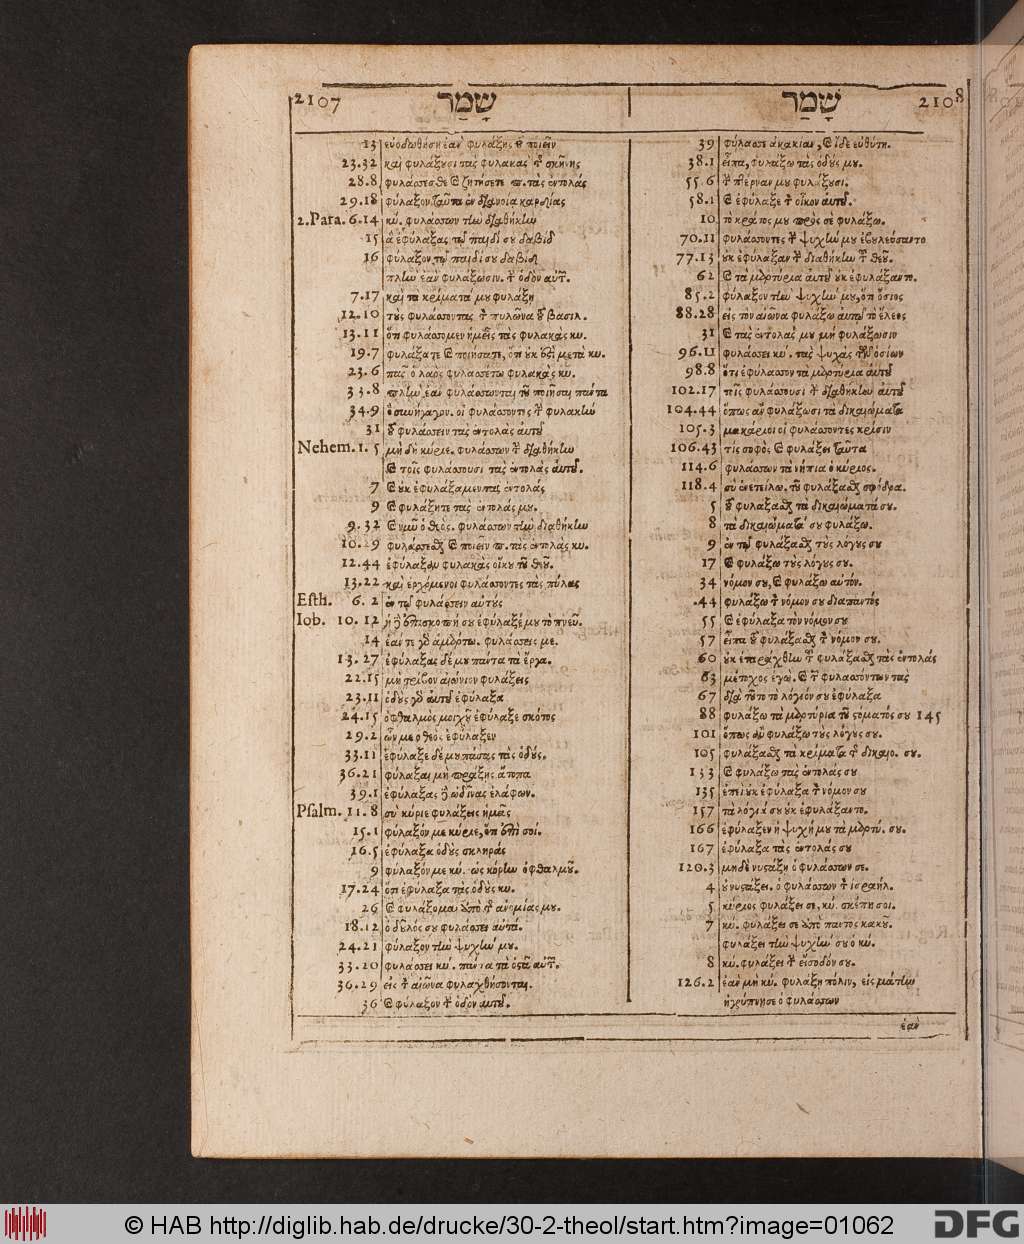 2107 שָׁמַר
שָׁמַר 2108
13 εὐοδωθήσῃ ἐὰν φυλάξῃς τοῦ ποιεῖν
23.32 καὶ φυλάξουσι τὰς φυλακὰς τῆς σκηνῆς
28.8 φυλάσσεσθε καὶ ζητήσετε π. τὰς ἐντολὰς
29.18 φύλαξον ταῦτα ἐν διανοίᾳ καρδίας
2.Para. 6.14 κύ. φυλάσσων τὴν διαθήκην
15 ἃ ἐφύλαξας τῷ παιδί σου δαβὶδ
16 φύλαξον τῷ παιδί σου δαβὶδ
πλὴν ἐὰν φυλάξωσιν. τὴν ὁδὸν αὐτ.
7.17 καὶ τὰ κρίματά μου φυλάξῃ
12.10 τοὺς φυλάσσοντας τὸν πυλῶνα τοῦ βασιλ.
13.11 ὅτι φυλάσσομεν ἡμεῖς τὰς φυλακὰς κυ.
19.7 φυλάξατε καὶ ποιήσατε, ὅτι οὐκ ἔστι μετὰ κυ.
23.6 πᾶς ὁ λαὸς φυλασσέτω φυλακὰς κυ.
33.8 πλὴν ἐὰν φυλάσσωνται τοῦ ποιῆσαι πάντα
34.9 ὃ συνήγαγον. οἱ φυλάσσοντες τὴν φυλακὴν
31 τοῦ φυλάσσειν τὰς ἐντολὰς αὐτοῦ
Nehem. 1. 5 μὴ δὴ κύριε. φυλάσσων τὴν διαθήκην
καὶ τοῖς φυλάσσουσι τὰς ἐντολὰς αὐτοῦ.
7 καὶ οὐκ ἐφυλάξαμεν τὰς ἐντολάς
9 καὶ φυλάξητε τὰς ἐντολάς μου.
9.32 φυλάσσων τὴν διαθήκην
10.29 φυλάσσεσθαι καὶ ποιεῖν π. τὰς ἐντολὰς κυ.
12.44 ἐφύλαξαν φυλακὰς οἴκου τοῦ θεοῦ.
13.22 καὶ ἐρχόμενοι φυλάσσοντες τὰς πύλας
Esth. 6. 2 ἐν τῷ φυλάσσειν αὐτοὺς
Iob. 10. 12 ἡ δὲ ἐπισκοπή σου ἐφύλαξέ μου τὸ πνεῦ.
14 ἐάν τε γὸ ἁμάρτω. φυλάσσεις με.
13. 27 ἐφύλαξας δέ μου πάντα τὰ ἔργα.
22.15 μὴ τρίβον αἰώνιον φυλάξεις
23.11 ὁδοὺς γὸ αὐτοῦ ἐφύλαξα
24.15 ὀφθαλμὸς μοιχοῦ ἐφύλαξε σκότος
29.2 ὧν με ὁ θεὸς ἐφύλαξεν
33.11 ἐφύλαξε δέ μου πάσας τὰς ὁδούς.
36.21 φύλαξαι μὴ πράξῃς ἄτοπα
39.1 ἐφύλαξας δὲ ὠδῖνας ἐλάφων.
Psalm. 11. 8 σὺ κύριε φυλάξεις ἡμᾶς
15.1 φύλαξόν με κύριε, ὅτι ἐπὶ σοί.
16.5 ἐφύλαξα ὁδοὺς σκληρὰς
9 φύλαξόν με κύ. ὡς κόρην ὀφθαλμοῦ.
17.24 ὅτι ἐφύλαξα τὰς ὁδοὺς κυ.
26 καὶ φυλάξομαι ἀπὸ τῆς ἀνομίας μου.
18.12 ὁ δοῦλός σου φυλάσσει αὐτά.
24.21 φύλαξον τὴν ψυχήν μου.
33.20 φυλάσσει κύ. πάντα τὰ ὀστᾶ αὐτ.
36.29 εἰς τὸν αἰῶνα φυλαχθήσονται.
36 καὶ φύλαξον τὴν ὁδὸν αὐτοῦ.
39 φύλασσε ἀκακίαν, καὶ ἴδε εὐθύτη.
38.1 εἶπα, φυλάξω τὰς ὁδούς μου.
55.6 τὴν πτέρναν μου φυλάξουσι.
58.1 καὶ ἐφύλαξε τὸν οἶκον αὐτοῦ.
10 τὸ κράτος μου πρὸς σὲ φυλάξω.
70.11 φυλάσσοντες τὴν ψυχήν μου ἐβουλεύσαντο
77.13 οὐκ ἐφύλαξαν τὴν διαθήκην τοῦ θεοῦ.
62 καὶ τὰ μαρτύρια αὐτοῦ οὐκ ἐφυλάξαντο.
85.2 φύλαξον τὴν ψυχήν μου, ὅτι ὅσιος
88.28 εἰς τὸν αἰῶνα φυλάξω αὐτῷ τὸ ἔλεος
31 καὶ τὰς ἐντολάς μου μὴ φυλάξωσιν
96.11 φυλάσσει κύ. τὰς ψυχὰς τῶν ὁσίων
98.8 ὅτι ἐφύλασσον τὰ μαρτύρια αὐτοῦ
102.17 τοῖς φυλάσσουσι τὴν διαθήκην αὐτοῦ
104.44 ὅπως ἂν φυλάξωσι τὰ δικαιώματα
105.3 μακάριοι οἱ φυλάσσοντες κρίσιν
106.43 τίς σοφὸς καὶ φυλάξει ταῦτα
114.6 φυλάσσων τὰ νήπια ὁ κύριος.
118.4 σὺ ἐνετείλω. τοῦ φυλάξασθαι σφόδρα.
5 τοῦ φυλάξασθαι τὰ δικαιώματά σου.
8 τὰ δικαιώματά σου φυλάξω.
9 ἐν τῷ φυλάξασθαι τοὺς λόγους σου
17 καὶ φυλάξω τοὺς λόγους σου.
34 νόμον σου, καὶ φυλάξω αὐτόν.
44 φυλάξω τὸν νόμον σου διαπαντός
55 καὶ ἐφύλαξα τὸν νόμον σου
57 εἶπα τοῦ φυλάξασθαι τὸν νόμον σου.
60 οὐκ ἐταράχθην τοῦ φυλάξασθαι τὰς ἐντολάς
63 μέτοχος ἐγὼ. καὶ τῶν φυλασσόντων τὰς
67 διὰ τοῦτο τὸ λόγιόν σου ἐφύλαξα
88 φυλάξω τὰ μαρτύρια τοῦ στόματός σου 145
101 ὅπως ἂν φυλάξω τοὺς λόγους σου.
105 φυλάξασθαι τὰ κρίματα τῆς δικαιο. σου.
133 καὶ φυλάξω τὰς ἐντολάς σου
135 ἐπεὶ οὐκ ἐφύλαξα τὸν νόμον σου
157 τὰ λόγιά σου οὐκ ἐφυλάξαντο.
166 ἐφύλαξεν ἡ ψυχή μου τὰ μαρτύ. σου.
167 ἐφύλαξα τὰς ἐντολάς σου
120.3 μηδὲ νυστάξῃ ὁ φυλάσσων σε.
4 οὐ νυστάξει. ὁ φυλάσσων τὸν ἰσραήλ.
5 κύριος φυλάξει σε, κύ. σκέπη σοι.
7 κύ. φυλάξει σε ἀπὸ παντὸς κακοῦ.
φυλάξει τὴν ψυχήν σου ὁ κύ.
8 κύ. φυλάξει τὴν εἴσοδόν σου.
126.2 ἐὰν μὴ κύ. φυλάξῃ πόλιν, εἰς μάτην
ἠγρύπνησε ὁ φυλάσσων
ἐὰν
© HAB http://diglib.hab.de/drucke/30-2-theol/start.htm?image=01062
DFG